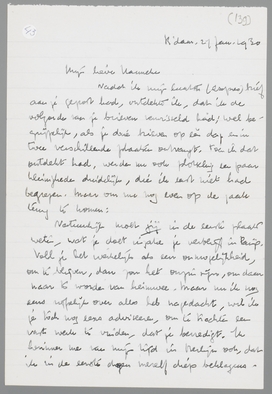 (139)
A'dam. 21 Jan. 1930
Mijn lieve Hanneke
Nadat ik mijn laatste brief
aan je gepost had, ontdekte ik, dat ik de
volgorde van je brieven verwisseld had; wel be-
grijpelijk, als je drie brieven op één dag en in
twee verschillende plaatsen ontvangt. Toen ik dat
ontdekt had, werden me ook plotseling een paar
kleinigheden duidelijk, die ik eerst niet had
begrepen. Maar om nog even op de zaak
terug te komen:
Natuurlijk moet jij in de eerste plaats
weten, wat je doet inzake je verblijf in
Voel je het werkelijk als een onmogelijkheid,
om te blijven, dan
naar te worden van heimwee. Maar nu ik nog
eens over alles heb nagedacht, wil ik
je toch nog eens adviseeren, om te trachten een
vast werk te vinden, dat je bevredigt. Ik
herinner me van mijn tijd in Berlijn ook, dat
ik in de eerste dagen mezelf diep beklaagde.